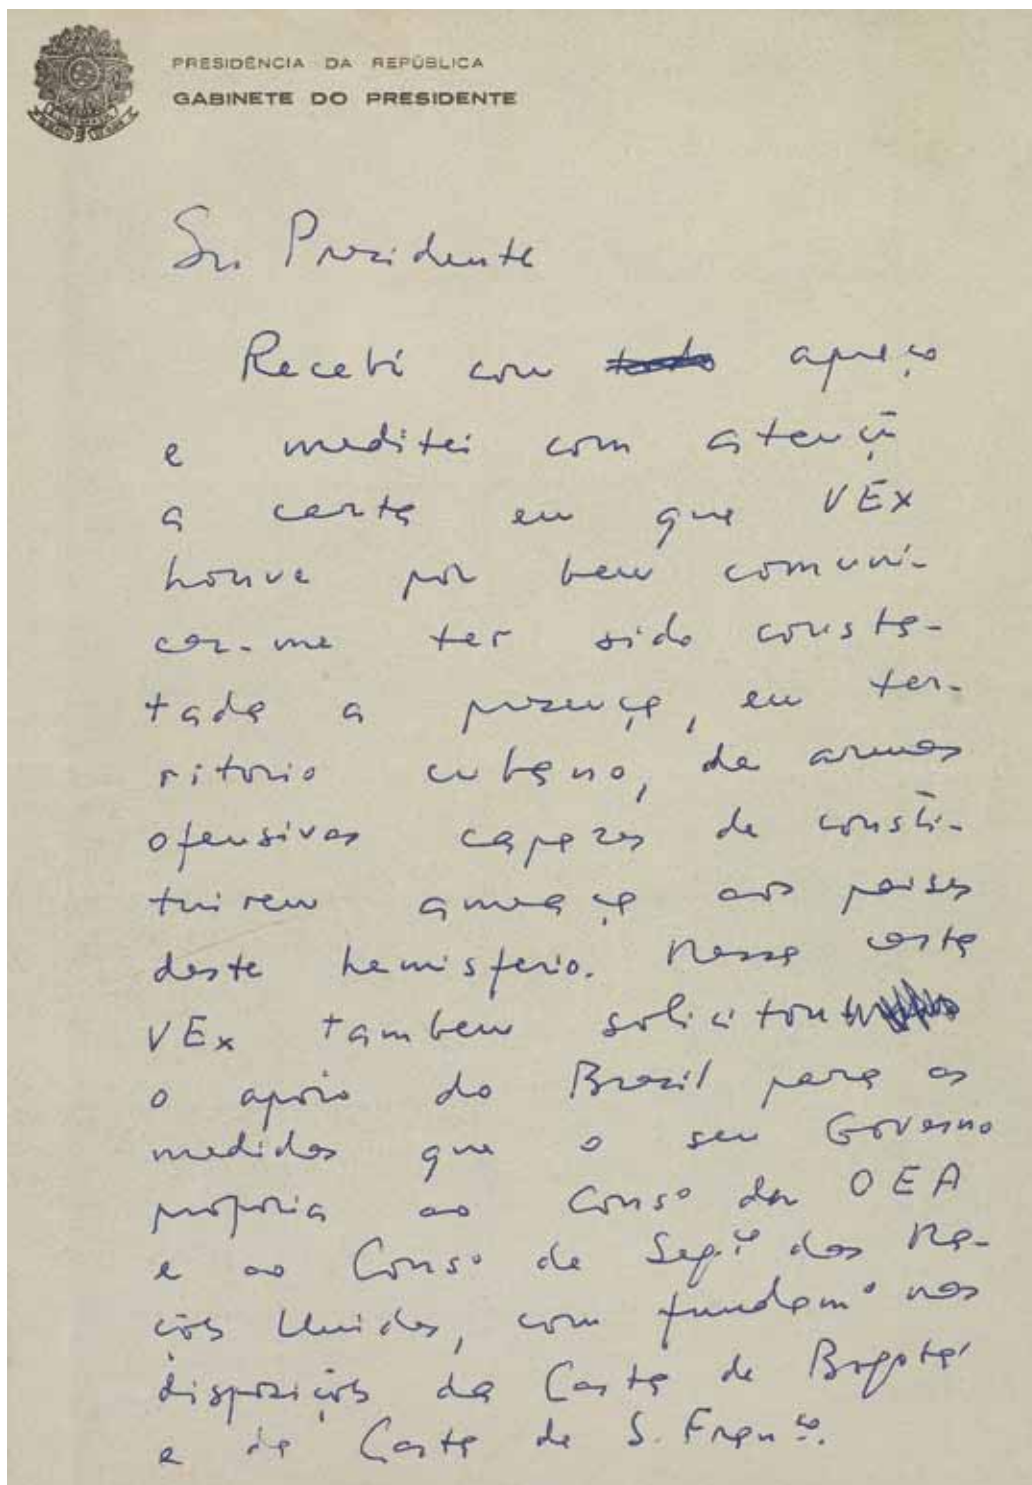 PRESIDÊNCIA DA REPÚBLICA
GABINETE DO PRESIDENTE
Sr. Presidente
Recebí com todo apreço
e meditei com atençã
a carta em que VEx
houve por bem comuni-
car-me ter sido consta-
tada a presença, em ter-
ritorio cubano, de armas
ofensivas capazes de consti-
tuirem ameaça aos paises
deste hemisferio. Nessa carta
VEx tambem solicitou
o apoio do Brasil para as
medidas que o seu Governo
proporia ao Consº da OEA
e ao Consº de Segçª das Na-
ções Unidas, com fundamº nas
disposições da Carta de Bogotá
e da Carta de S. Francº.